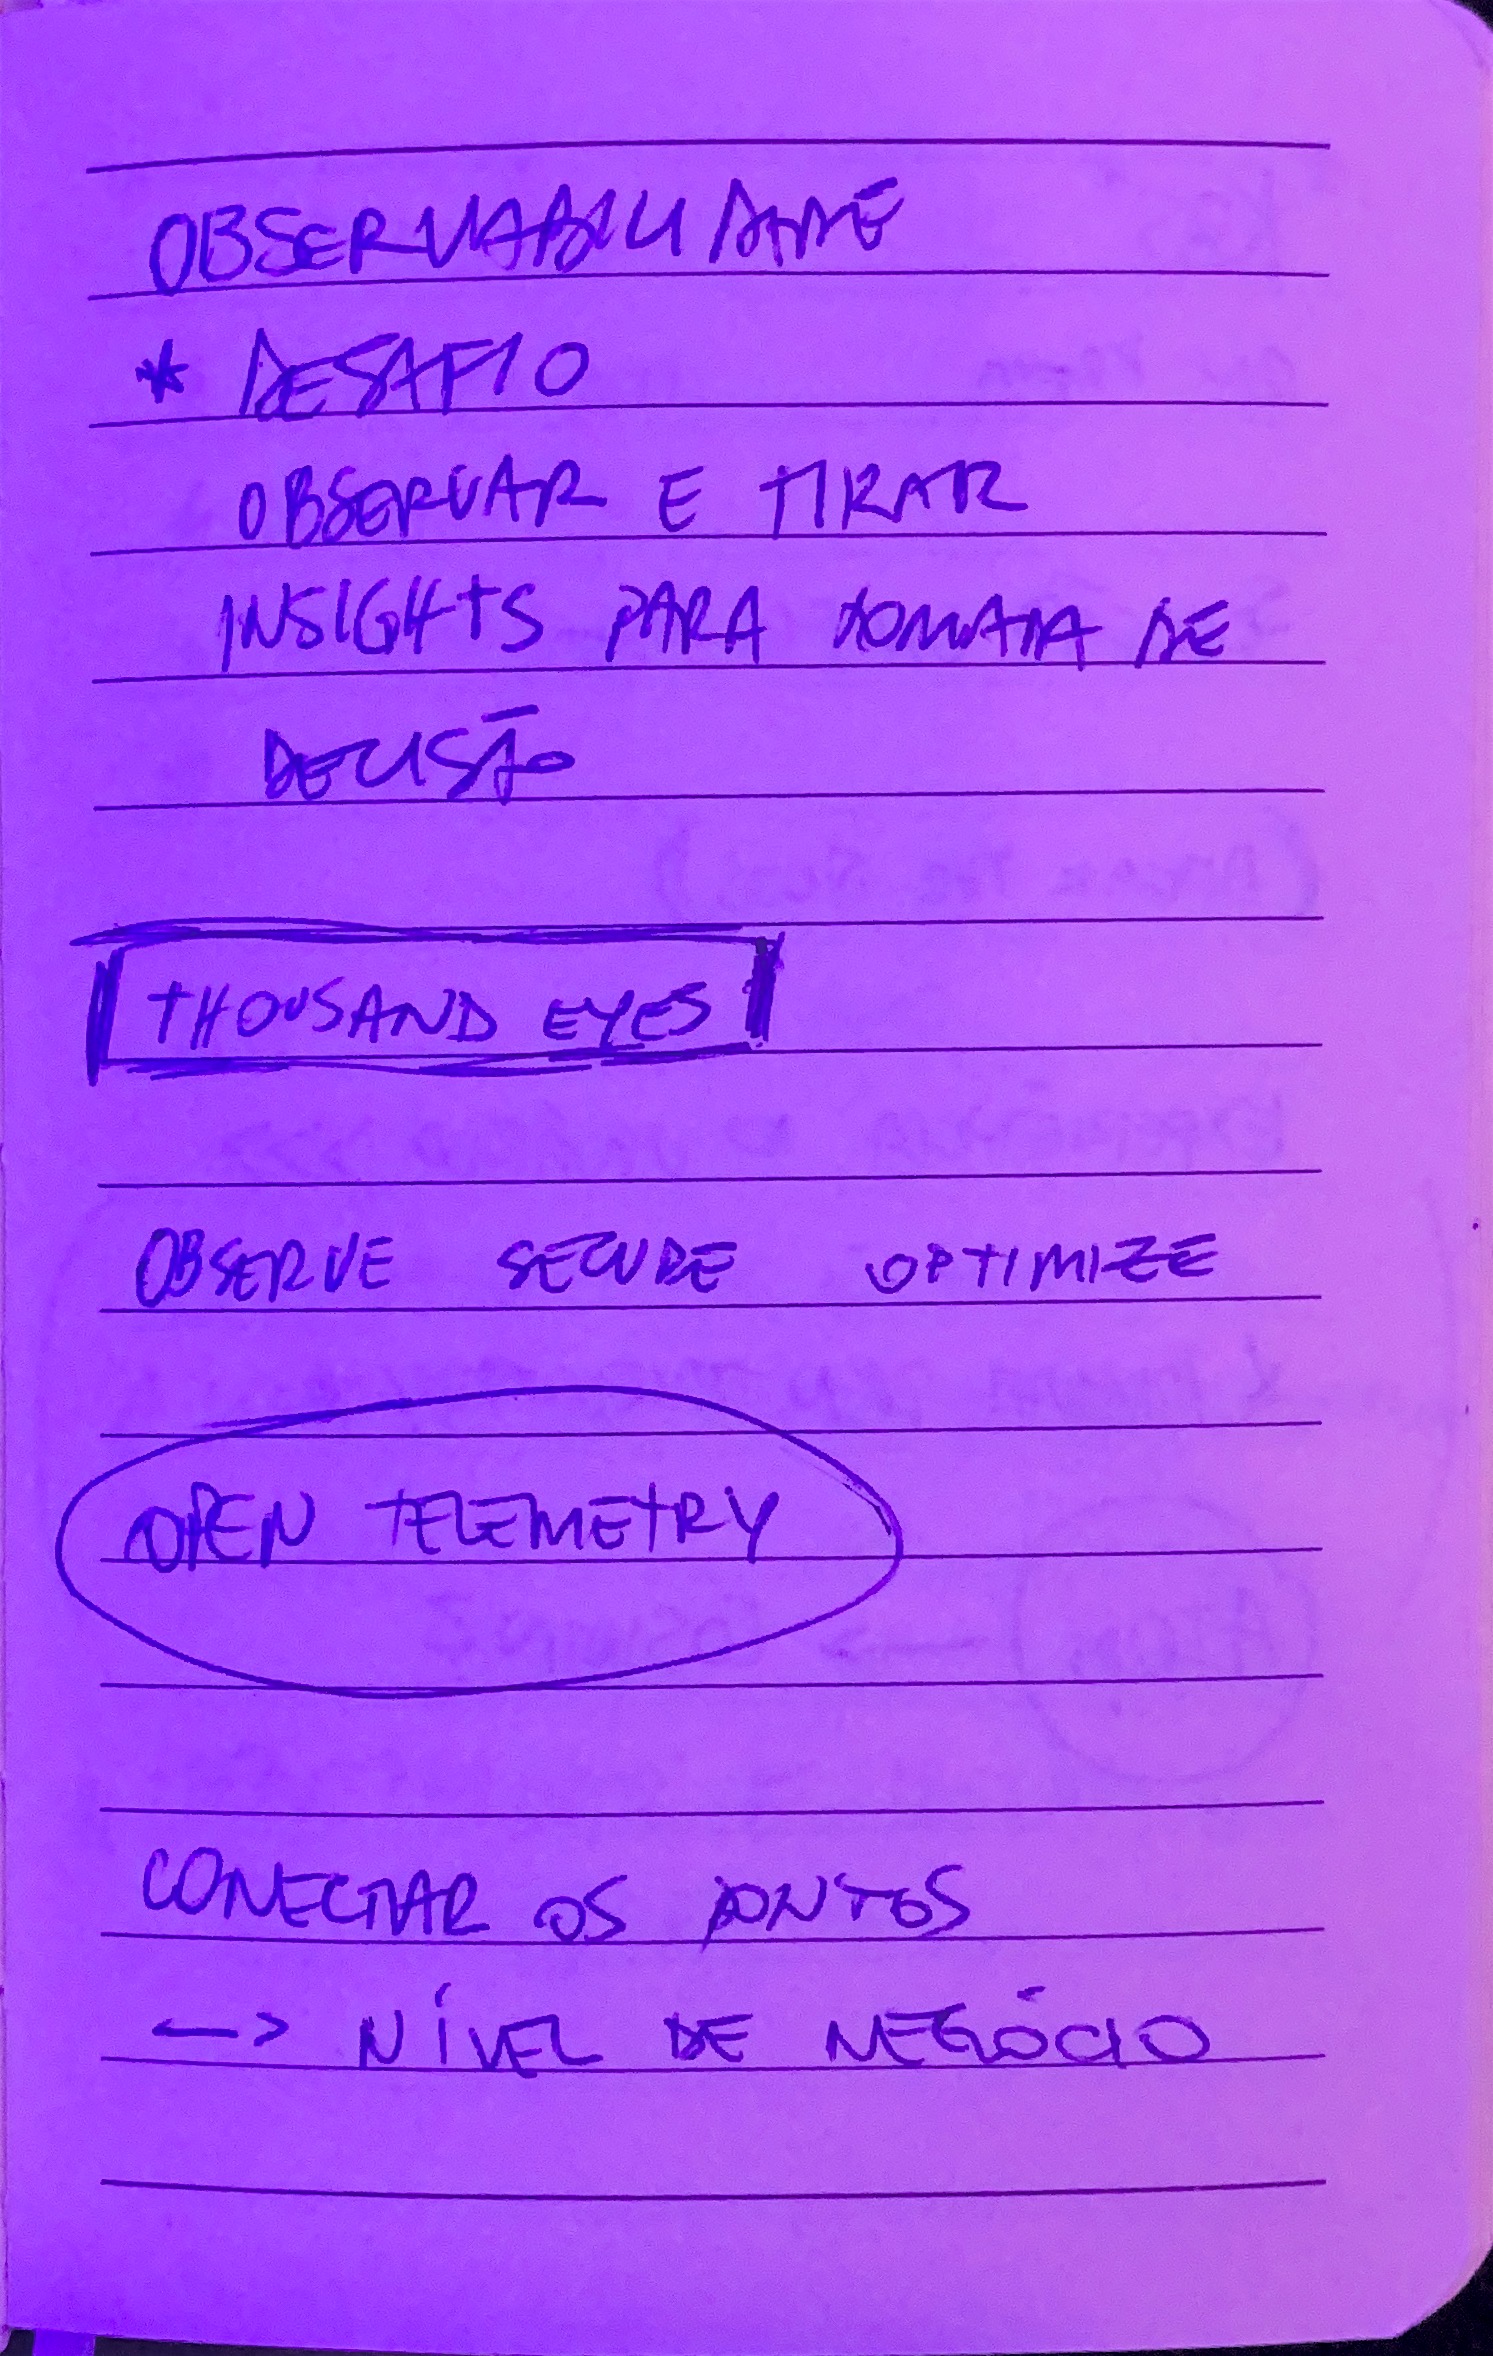 OBSERVABILIDADE
* DESAFIO
OBSERVAR E TIRAR
INSIGHTS PARA TOMADA DE
DECISÃO
THOUSAND EYES
OBSERVE SECURE OPTIMIZE
OPEN TELEMETRY
CONECTAR OS PONTOS
—> NÍVEL DE NEGÓCIO